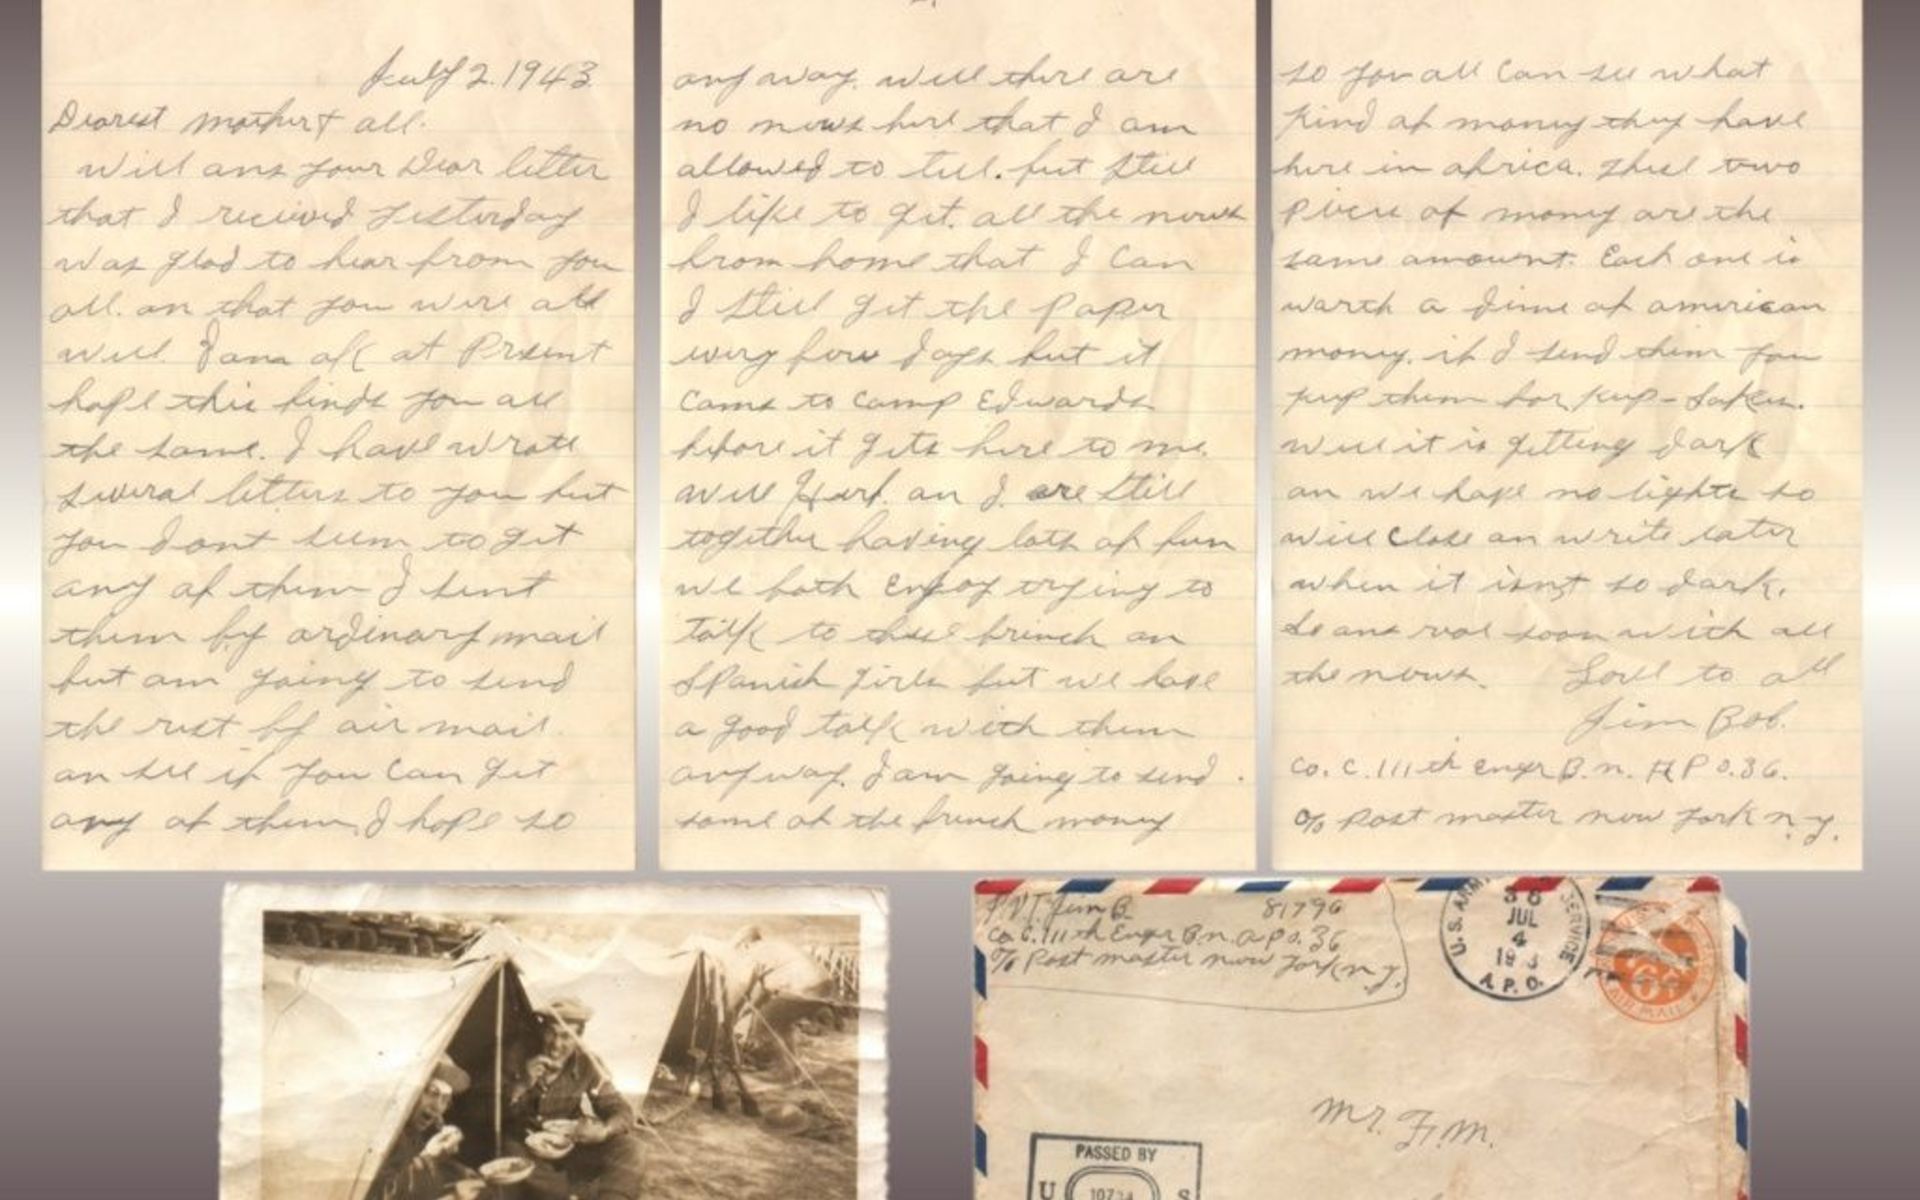 July 2. 1943.
Dearest mother & all.
Will ans your Dear letter
that I recieved yesterday
was glad to hear from you
all. an that you were all
well. I am ok at Present
hope this finds you all
the same. I have wrote
several letters to you but
you dont seem to get
any of them I sent
them by ordinary mail
but am going to send
the rest by air mail.
an see if you can get
any of them, I hope so
2.
any way. well there are
no news here that I am
allowed to tell. but still
I like to get. all the news
from home that I can
I still get the Paper
every few days but it
Coms to Camp Edwards
before it gets here to me.
Well Herb. an I. are still
together having lots of fun
we both Enjoy trying to
talk to these french an
Spanish girls but we have
a good talk with them
anyway. I am going to send
some of the french money
so you all Can see what
kind of money they have
here in africa. These two
Piece of money are the
same amount. Each one is
worth a dime of american
money. if I send them you
keep them for keep-sakes.
well it is getting dark
an we have no lights so
will Close an write later
when it isnt so dark.
So ans real soon with all
the news. Love to all
Jim Bob.
Co. C. 111th Engr B.n. A P O. 36.
c/o Post master new York n.y.
PVT. Jim B. 81796
Co. C. 111th Engr B.n. A P O. 36
c/o Post master new York n.y.
U.S. ARMY SERVICE
JUL
4
A. P. O.
AIR MAIL
Mr. F. M.
PASSED BY
U S